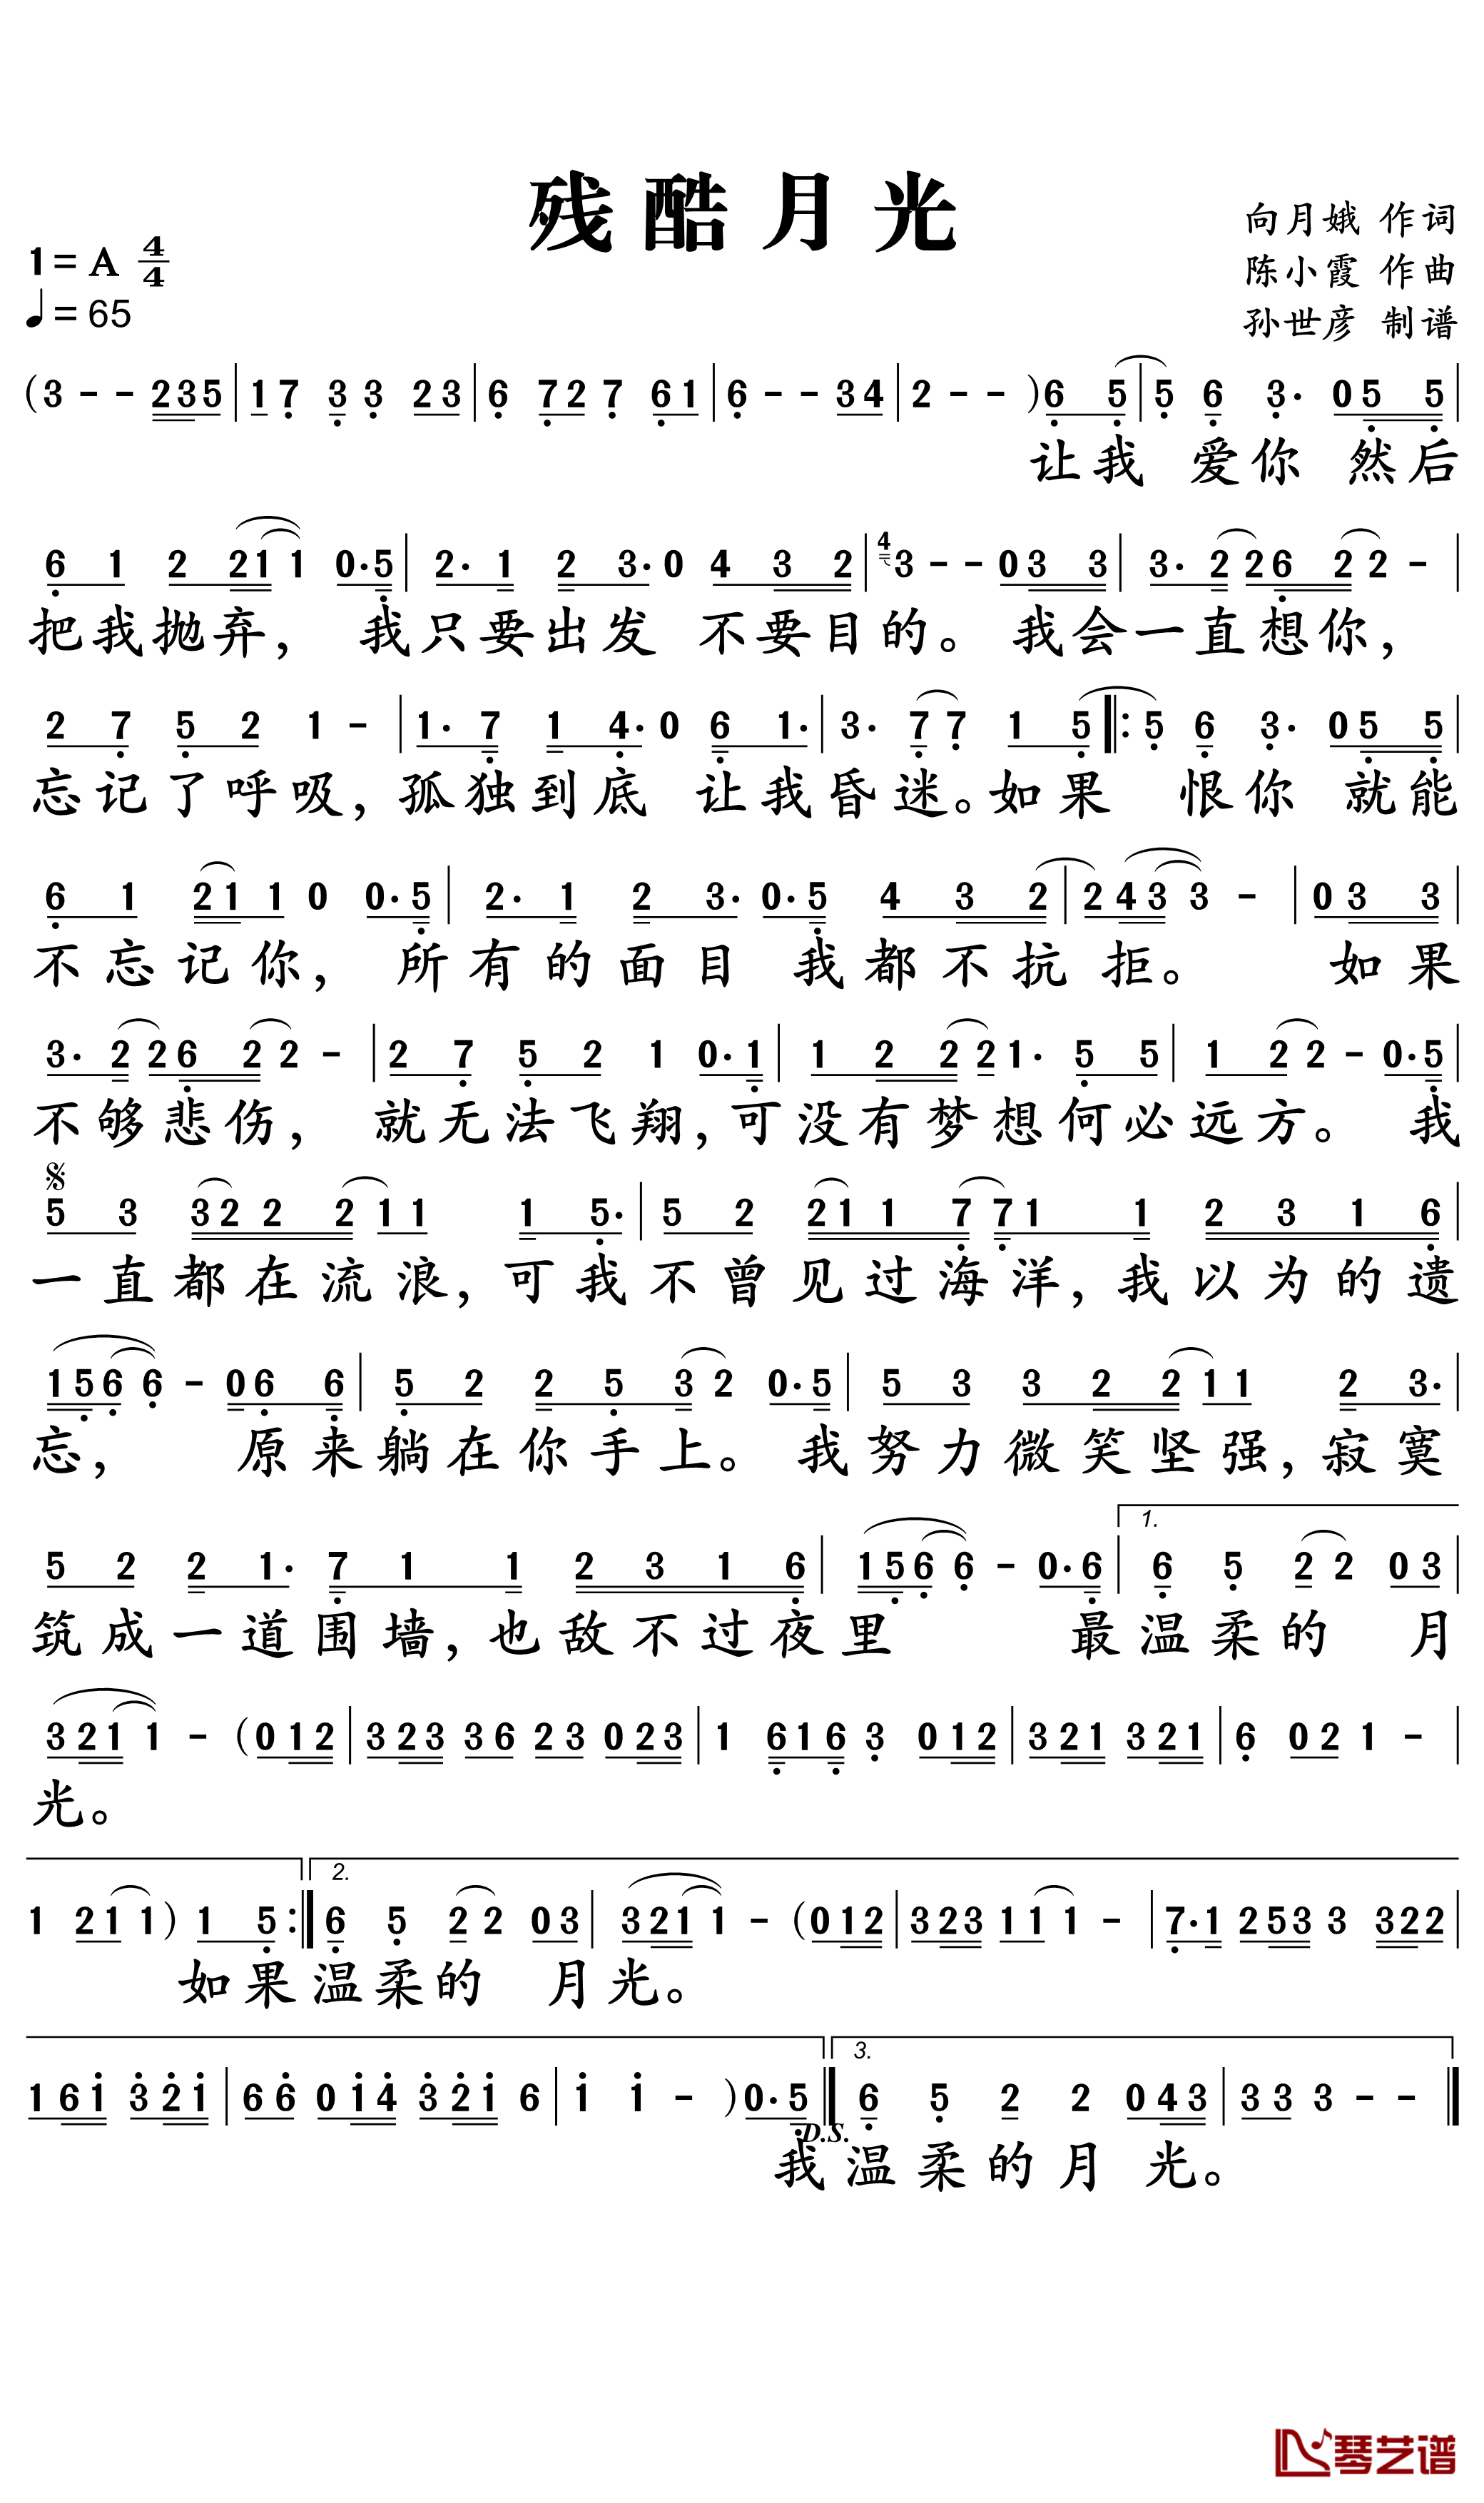 残酷月光
向月娥 作词
1= A 4/4
陈小霞 作曲
♩= 65
孙世彦 制谱
(3 - - 235 | 17 3 3 23 | 6 72 7 61 | 6 - - 34 | 2 - - )6 5 | 5 6 3· 05 5 |
让我 爱你 然后
6 1 2 21 1 0·5 | 2· 1 2 3·0 4 3 2 | 4 3 - - 03 3 | 3· 2 26 2 2 - |
把我抛弃, 我只要出发 不要目的。 我会一直想你,
2 7 5 2 1 - | 1· 7 1 4·0 6 1· | 3· 7 7 1 5 |: 5 6 3· 05 5 |
忘记了呼吸,孤独到底 让我昏迷。如果 恨你 就能
6 1 21 1 0 0·5 | 2· 1 2 3· 0·5 4 3 2 | 243 3 - | 03 3 |
不忘记你, 所有的面目 我都不抗拒。 如果
3· 2 26 2 2 - | 2 7 5 2 1 0·1 | 1 2 2 21· 5 5 | 1 2 2 - 0·5 |
不够悲伤, 就无法飞翔,可没有梦想何必远方。 我
5 3 322 2 11 1 5· | 5 2 21 1 7 71 1 2 3 1 6 |
一直都在流浪,可我不曾见过海洋,我以为的遗
156 6 - 06 6 | 5 2 2 5 3 2 0·5 | 5 3 3 2 2 11 2 3· |
忘, 原来躺在你手上。 我努力微笑坚强,寂寞
5 2 2 1· 7 1 1 2 3 1 6 | 156 6 - 0·6 | 1. 6 5 2 2 03 |
筑成一道围墙,也敌不过夜里 最温柔的 月
321 1 - (012 | 323 36 23 023 | 1 616 3 012 | 321 321 | 6 02 1 - |
光。
1 21 1 ) 1 5 :| 2. 6 5 2 2 03 | 321 1 - (012 | 323 11 1 - | 7·1 253 3 322 |
如果温柔的 月光。
161 321 | 66 014 321 6 | 1 1 - )0·5 | 3. 6 5 2 2 043 | 33 3 - - |
D.S.
我温柔的月 光。
琴艺谱